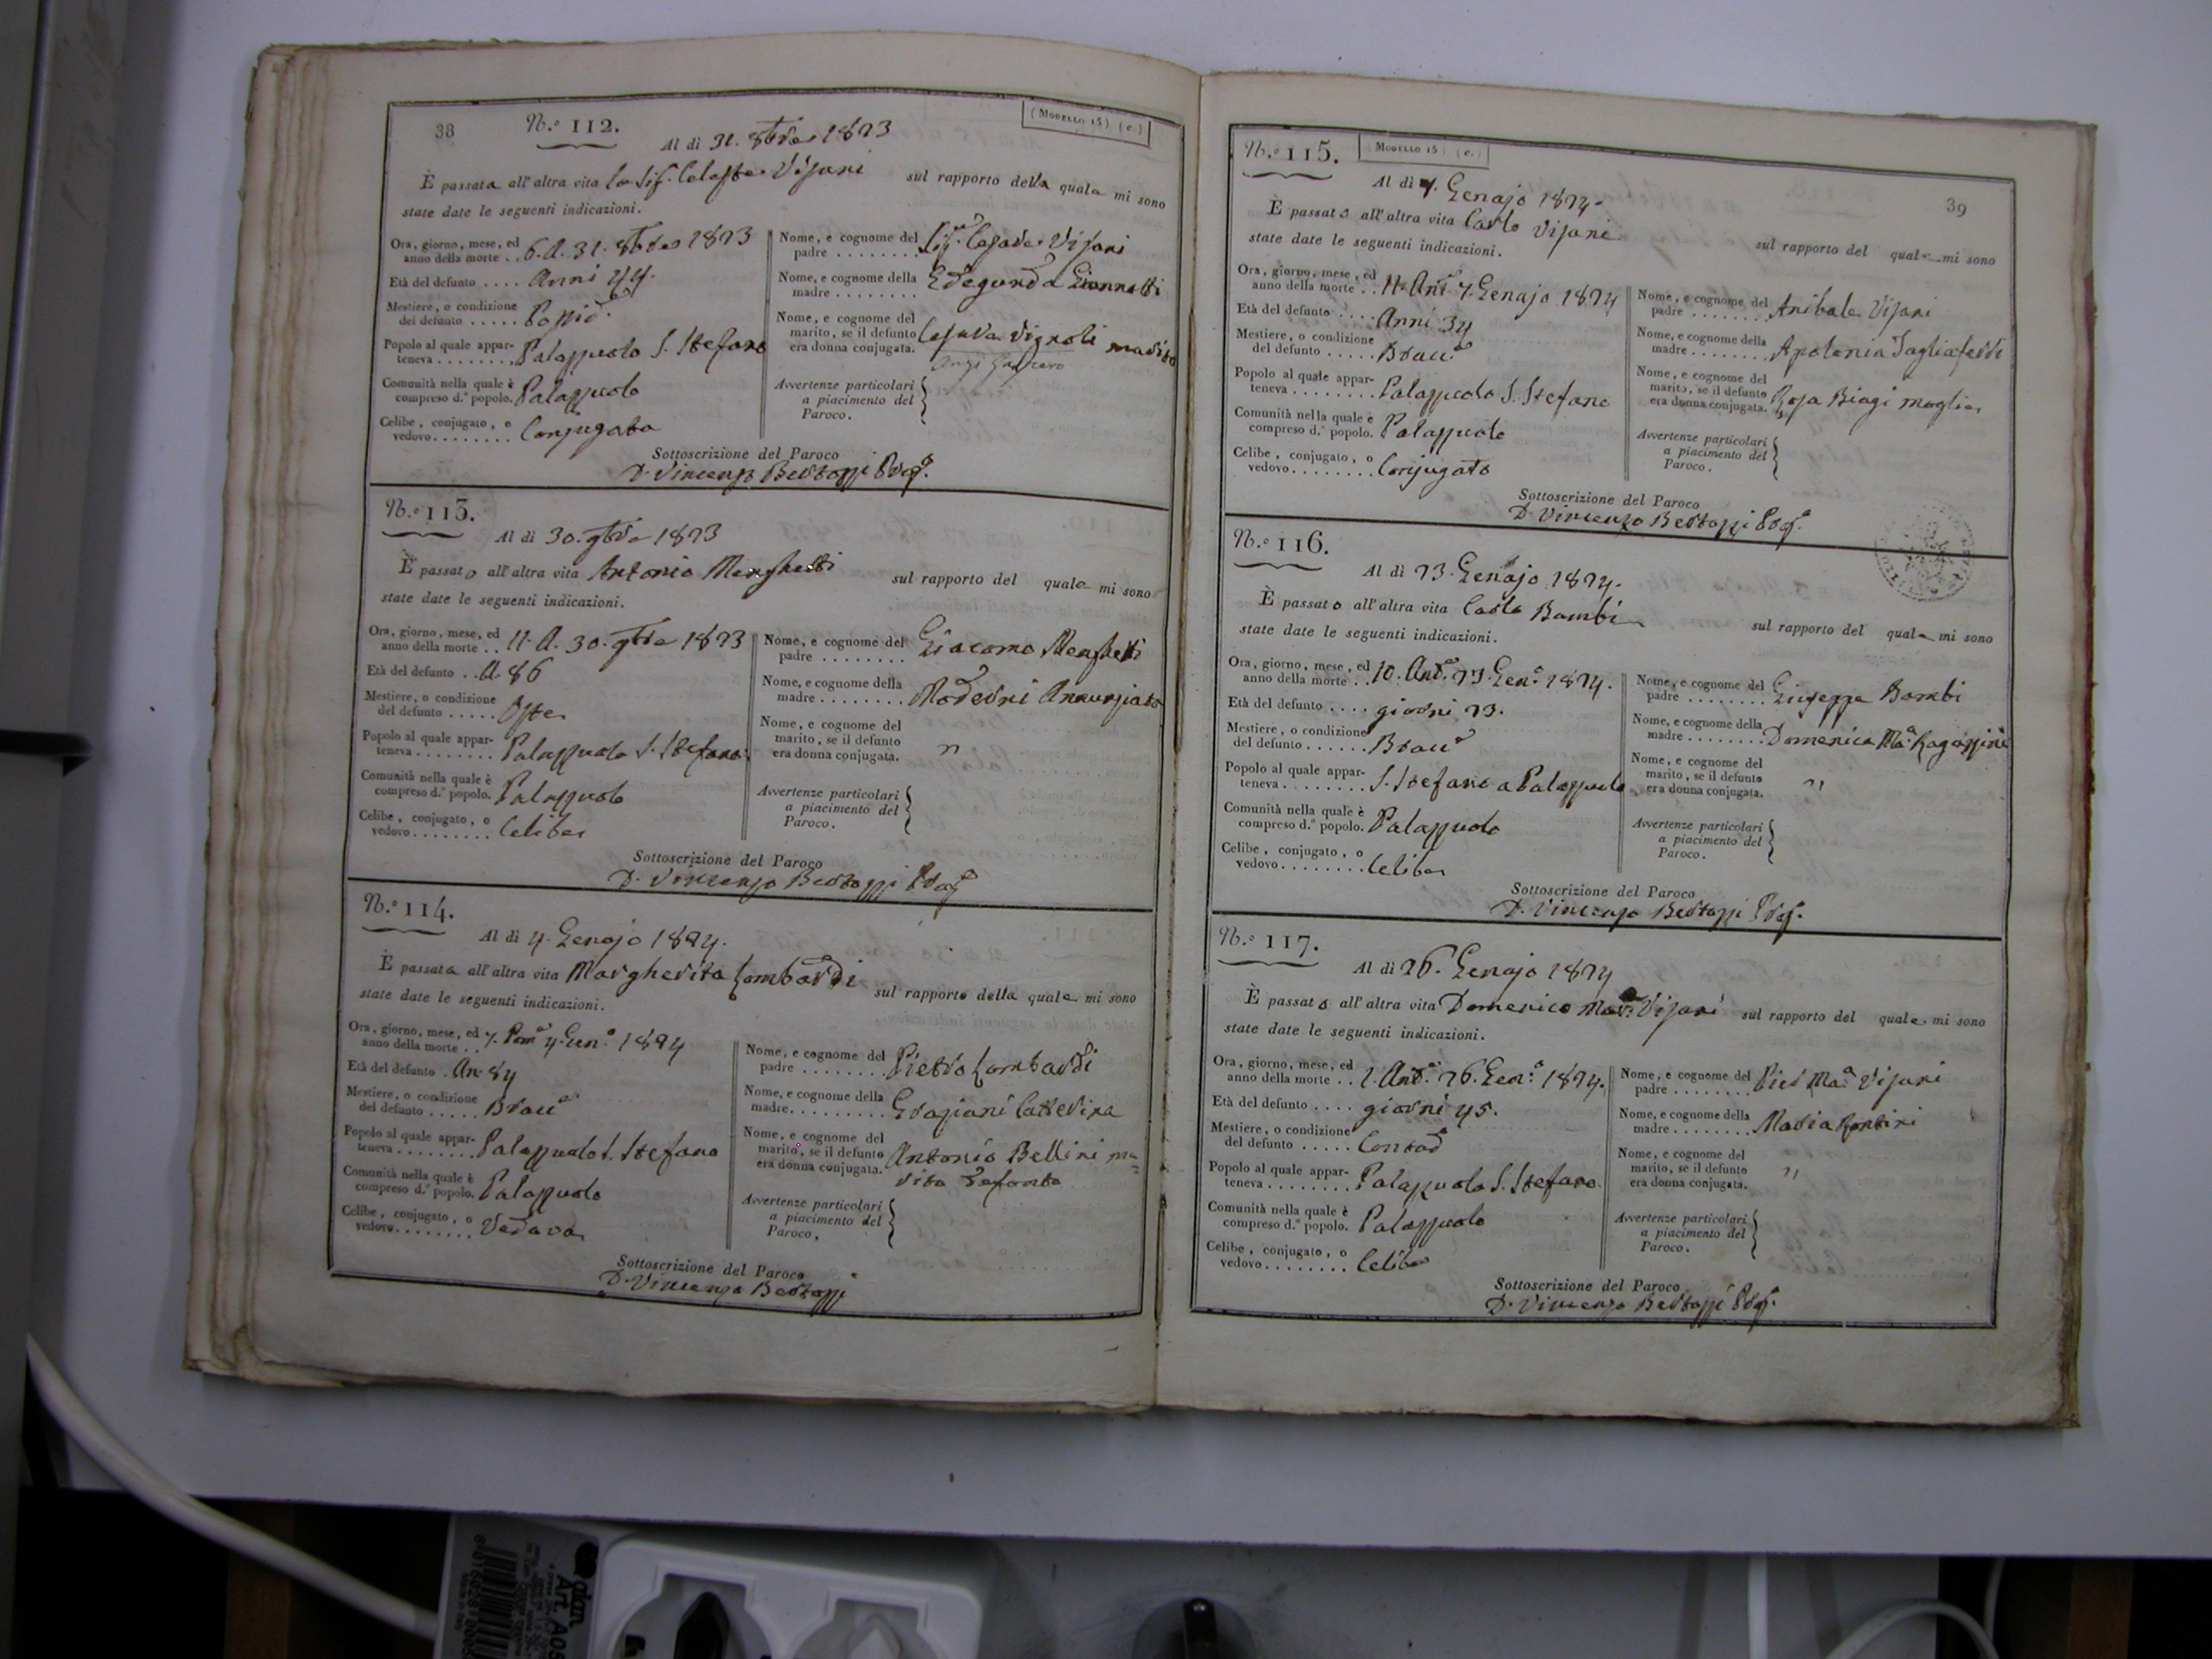 38
N.° 112.
(Modello 15) (c.)
Al dì 31. 8bre 1823
È passata all'altra vita la Sig. Celeste Visani sul rapporto della quale mi sono
state date le seguenti indicazioni.
Ora, giorno, mese, ed
anno della morte . . 6. A. 31. 8bre 1823
Età del defunto . . . . Anni 44.
Mestiere, o condizione
del defunto . . . . . Possid.
Popolo al quale appar-
teneva . . . . . . . . Palazzuolo S. Stefano
Comunità nella quale è
compreso d.° popolo. Palazzuolo
Celibe, conjugato, o
vedovo. . . . . . . . Conjugata
Nome, e cognome del
padre . . . . . . . . Sig. Cesare Visani
Nome, e cognome della
madre . . . . . . . . Edegunda Giannelli
Nome, e cognome del
marito, se il defunto
era donna conjugata. Cesare Vignoli marito
Avvertenze particolari
a piacimento del
Paroco.
Sottoscrizione del Paroco
D. Vincenzo Bertozzi Prop.
N.° 113.
Al dì 30. 9bre 1823
È passato all'altra vita Antonio Menghetti sul rapporto del quale mi sono
state date le seguenti indicazioni.
Ora, giorno, mese, ed
anno della morte . . 11. A. 30. 9bre 1823
Età del defunto . . A. 86
Mestiere, o condizione
del defunto . . . . . Oste
Popolo al quale appar-
teneva . . . . . . . . Palazzuolo S. Stefano
Comunità nella quale è
compreso d.° popolo. Palazzuolo
Celibe, conjugato, o
vedovo. . . . . . . . Celibe
Nome, e cognome del
padre . . . . . . . . Giacomo Menghetti
Nome, e cognome della
madre . . . . . . . . Moderni Anunziata
Nome, e cognome del
marito, se il defunto
era donna conjugata. "
Avvertenze particolari
a piacimento del
Paroco.
Sottoscrizione del Paroco
D. Vincenzo Bertozzi Prop.
N.° 114.
Al dì 4. Genajo 1824.
È passata all'altra vita Margherita Lombardi sul rapporto della quale mi sono
state date le seguenti indicazioni.
Ora, giorno, mese, ed
anno della morte . . 7. Pom. 4. Gen. 1824
Età del defunto . An. 84
Mestiere, o condizione
del defunto . . . . . Brac.
Popolo al quale appar-
teneva . . . . . . . . Palazzuolo S. Stefano
Comunità nella quale è
compreso d.° popolo. Palazzuolo
Celibe, conjugato, o
vedovo. . . . . . . . Vedova
Nome, e cognome del
padre . . . . . . . . Pietro Lombardi
Nome, e cognome della
madre. . . . . . . . . Graziani Catterina
Nome, e cognome del
marito, se il defunto
era donna conjugata. Antonio Bellini ma=
rito defonto
Avvertenze particolari
a piacimento del
Paroco.
Sottoscrizione del Paroco
D. Vincenzo Bertozzi
N.° 115.
(Modello 15) (c.)
39
Al dì 7. Genajo 1824.
È passato all'altra vita Carlo Visani sul rapporto del quale mi sono
state date le seguenti indicazioni.
Ora, giorno, mese, ed
anno della morte . . 11. Ant. 7. Genajo 1824
Età del defunto . . . . Anni 34
Mestiere, o condizione
del defunto . . . . . Brac.
Popolo al quale appar-
teneva . . . . . . . . Palazzuolo S. Stefano
Comunità nella quale è
compreso d.° popolo. Palazzuolo
Celibe, conjugato, o
vedovo. . . . . . . . Conjugato
Nome, e cognome del
padre . . . . . . . . Anibale Visani
Nome, e cognome della
madre . . . . . . . . Apolonia Tagliaferri
Nome, e cognome del
marito, se il defunto
era donna conjugata. Rosa Biagi moglie
Avvertenze particolari
a piacimento del
Paroco.
Sottoscrizione del Paroco
D. Vincenzo Bertozzi Prop.
N.° 116.
Al dì 23. Genajo 1824.
È passato all'altra vita Carlo Bambi sul rapporto del quale mi sono
state date le seguenti indicazioni.
Ora, giorno, mese, ed
anno della morte . . 10. Ant. 23. Gen. 1824.
Età del defunto . . . . giorni 23.
Mestiere, o condizione
del defunto . . . . . . Brac.
Popolo al quale appar-
teneva . . . . . . . . S. Stefano a Palazzuolo
Comunità nella quale è
compreso d.° popolo. Palazzuolo
Celibe, conjugato, o
vedovo. . . . . . . . Celibe
Nome, e cognome del
padre . . . . . . . . Giuseppe Bambi
Nome, e cognome della
madre . . . . . . . . Domenica Ma. Ragazzini
Nome, e cognome del
marito, se il defunto
era donna conjugata. "
Avvertenze particolari
a piacimento del
Paroco.
Sottoscrizione del Paroco
D. Vincenzo Bertozzi Prop.
N.° 117.
Al dì 26. Genajo 1824
È passato all'altra vita Domenico Mar. Visani sul rapporto del quale mi sono
state date le seguenti indicazioni.
Ora, giorno, mese, ed
anno della morte . . 1. Ant. 26. Gen. 1824.
Età del defunto . . . . giorni 45.
Mestiere, o condizione
del defunto . . . . . Contad
Popolo al quale appar-
teneva . . . . . . . . Palazzuolo S. Stefano
Comunità nella quale è
compreso d.° popolo. Palazzuolo
Celibe, conjugato, o
vedovo. . . . . . . . Celibe
Nome, e cognome del
padre . . . . . . . . Pier Ma. Visani
Nome, e cognome della
madre . . . . . . . . Maria Fontini
Nome, e cognome del
marito, se il defunto
era donna conjugata. "
Avvertenze particolari
a piacimento del
Paroco.
Sottoscrizione del Paroco
D. Vincenzo Bertozzi Prop.
dan
Art. A05